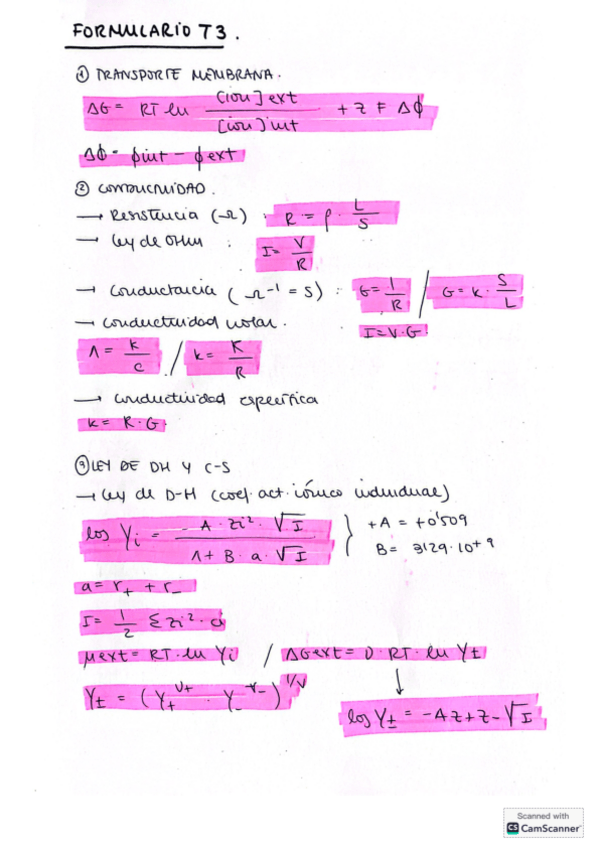 FORMULARIO T3.
① TRANSPORTE MEMBRANA.
ΔG = RT ln [ion]ext / [ion]int + z F Δϕ
Δϕ = ϕint - ϕext
② CONDUCTIVIDAD.
→ Resistencia (Ω) : R = ρ · L/S
→ Ley de Ohm : I = V/R
→ Conductancia (Ω⁻¹ = S) : G = 1/R / G = k · S/L
→ conductividad molar. I = V·G
Λ = k/c / k = K/R
→ conductividad específica
k = R·G
③ LEY DE DH Y C-S
→ Ley de D-H (coef. act. iónico individual)
log γi = - A · zi² · √I / 1 + B · a · √I } +A = +0'509
B = 3'29·10⁺⁹
a = r₊ + r₋
I = 1/2 Σ zi² · ci
μext = RT·ln γi / ΔGext = ν · RT · ln γ±
γ± = (γ₊^ν₊ · γ₋^ν₋)^1/ν ↓
log γ± = -A z+z- √I
Scanned with
CS CamScanner